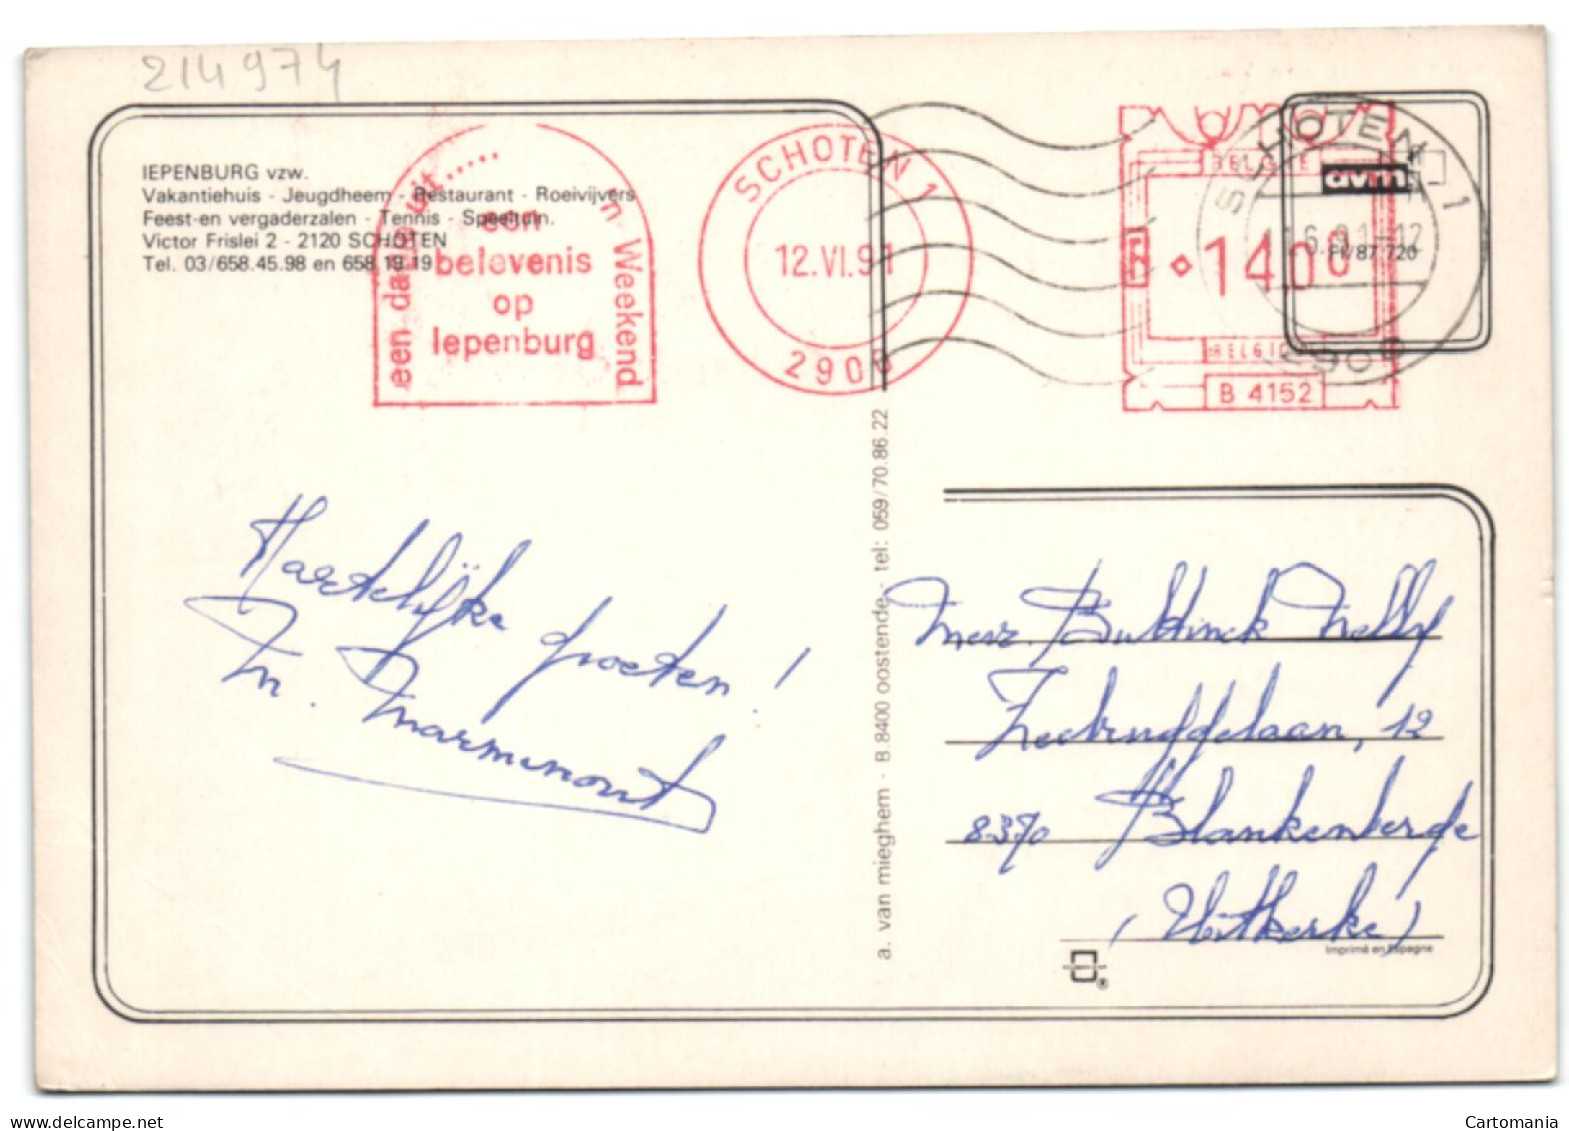 214974
IEPENBURG vzw.
Vakantiehuis - Jeugdheem - Restaurant - Roeivijvers
Feest-en vergaderzalen - Tennis - Speeltuin.
Victor Frislei 2 - 2120 SCHOTEN
Tel. 03/658.45.98 en 658.19.19
een dagje uit.....
een
belevenis
op
Iepenburg
'n Weekend
SCHOTEN 1
12.VI.91
2900
BELGIE
1400
BELGIQUE
B 4152
SCHOTEN 1
2900
avm
PI/87.720
Hartelijke groeten!
M. Marminout
a. van mieghem - B.8400 oostende - tel: 059/70.86.22
Mevr. Bultinck Nelly
Zeebruggelaan, 12
8370 Blankenberge
(Uitkerke)
Imprimé en Espagne
www.delcampe.net
Cartomania